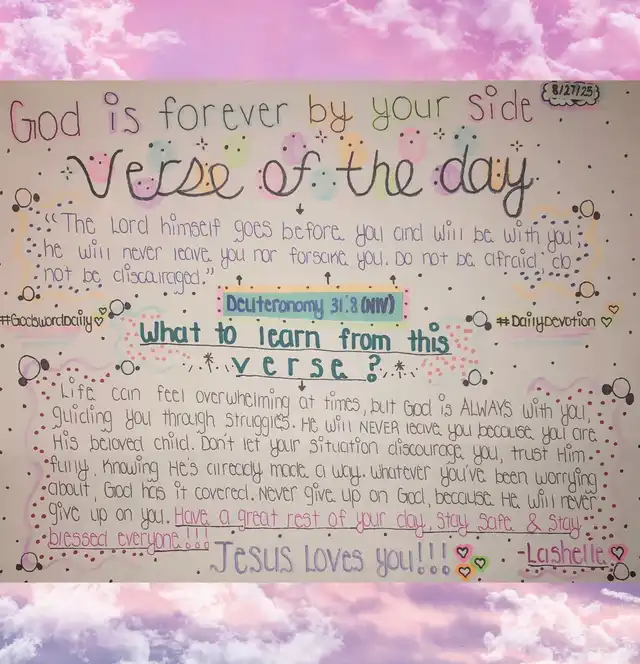 8/27/25
God is forever by your side
Verse of the day
"The Lord himself goes before you and will be with you;
he will never leave you nor forsake you. Do not be afraid; do
not be discouraged."
Deuteronomy 31:8 (NIV)
#GodswordDaily
#DailyDevotion
What to learn from this
verse?
Life can feel overwhelming at times, but God is ALWAYS with you,
guiding you through struggles. He will NEVER leave you because you are
His beloved child. Don't let your situation discourage you, trust Him
fully, knowing He's already made a way. Whatever you've been worrying
about, God has it covered. Never give up on God, because He will never
give up on you. Have a great rest of your day, stay safe & stay
blessed everyone!!!
Jesus Loves you!!!
-Lashelle